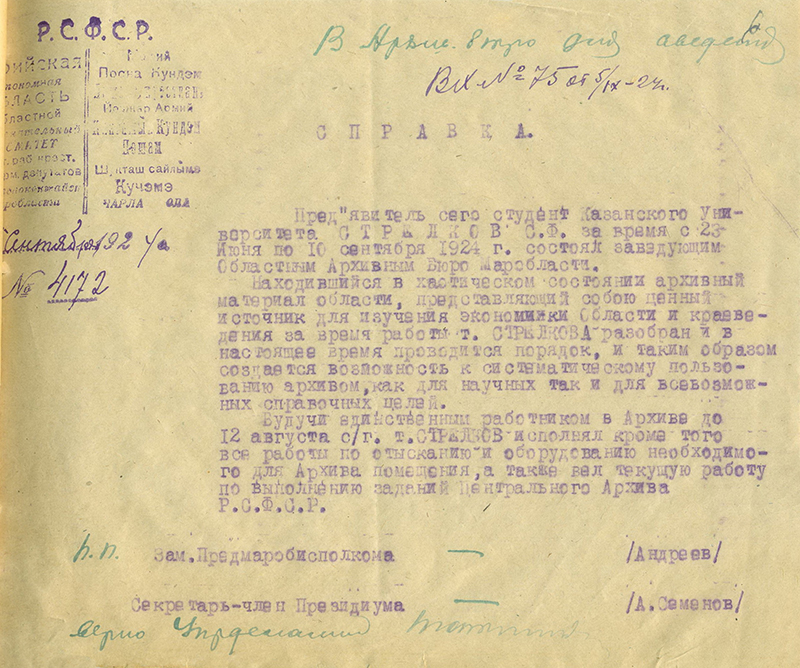 Р.С.Ф.С.Р.
ОБЛАСТЬ
Посна Кундэм
Шуктaш сайлымэ
Кучэмэ
ЧАРЛА ОЛА
В Архив. бюро для сведения
6
Вх №75 от 5/IX-24г.
Сентября 192 4 г.
№ 4172
СПРАВКА.
Пред"явитель сего студент Казанского Уни-
верситета СТРЕЛКОВ С.Ф. за время с 23
Июня по 10 сентября 1924 г. состоял заведующим
Областным Архивным Бюро Маробласти.
Находившийся в хаотическом состоянии архивный
материал области, представляющий собою ценный
источник для изучения экономики Области и краеве-
дения за время работы т. СТРЕЛКОВА разобран и в
настоящее время проводится порядок, и таким образом
создается возможность к систематическому пользо-
ванию архивом, как для научных так и для всевозмож-
ных справочных целей.
Будучи единственным работником в Архиве до
12 августа с/г. т.СТРЕЛКОВ исполнял кроме того
все работы по отысканию и оборудованию необходимо-
го для Архива помещения, а также вел текущую работу
по выполнению заданий Центрального Архива
Р.С.Ф.С.Р.
п.п. Зам.Предмаробисполкома — /Андреев/
Секретарь-член Президиума — /А.Семенов/